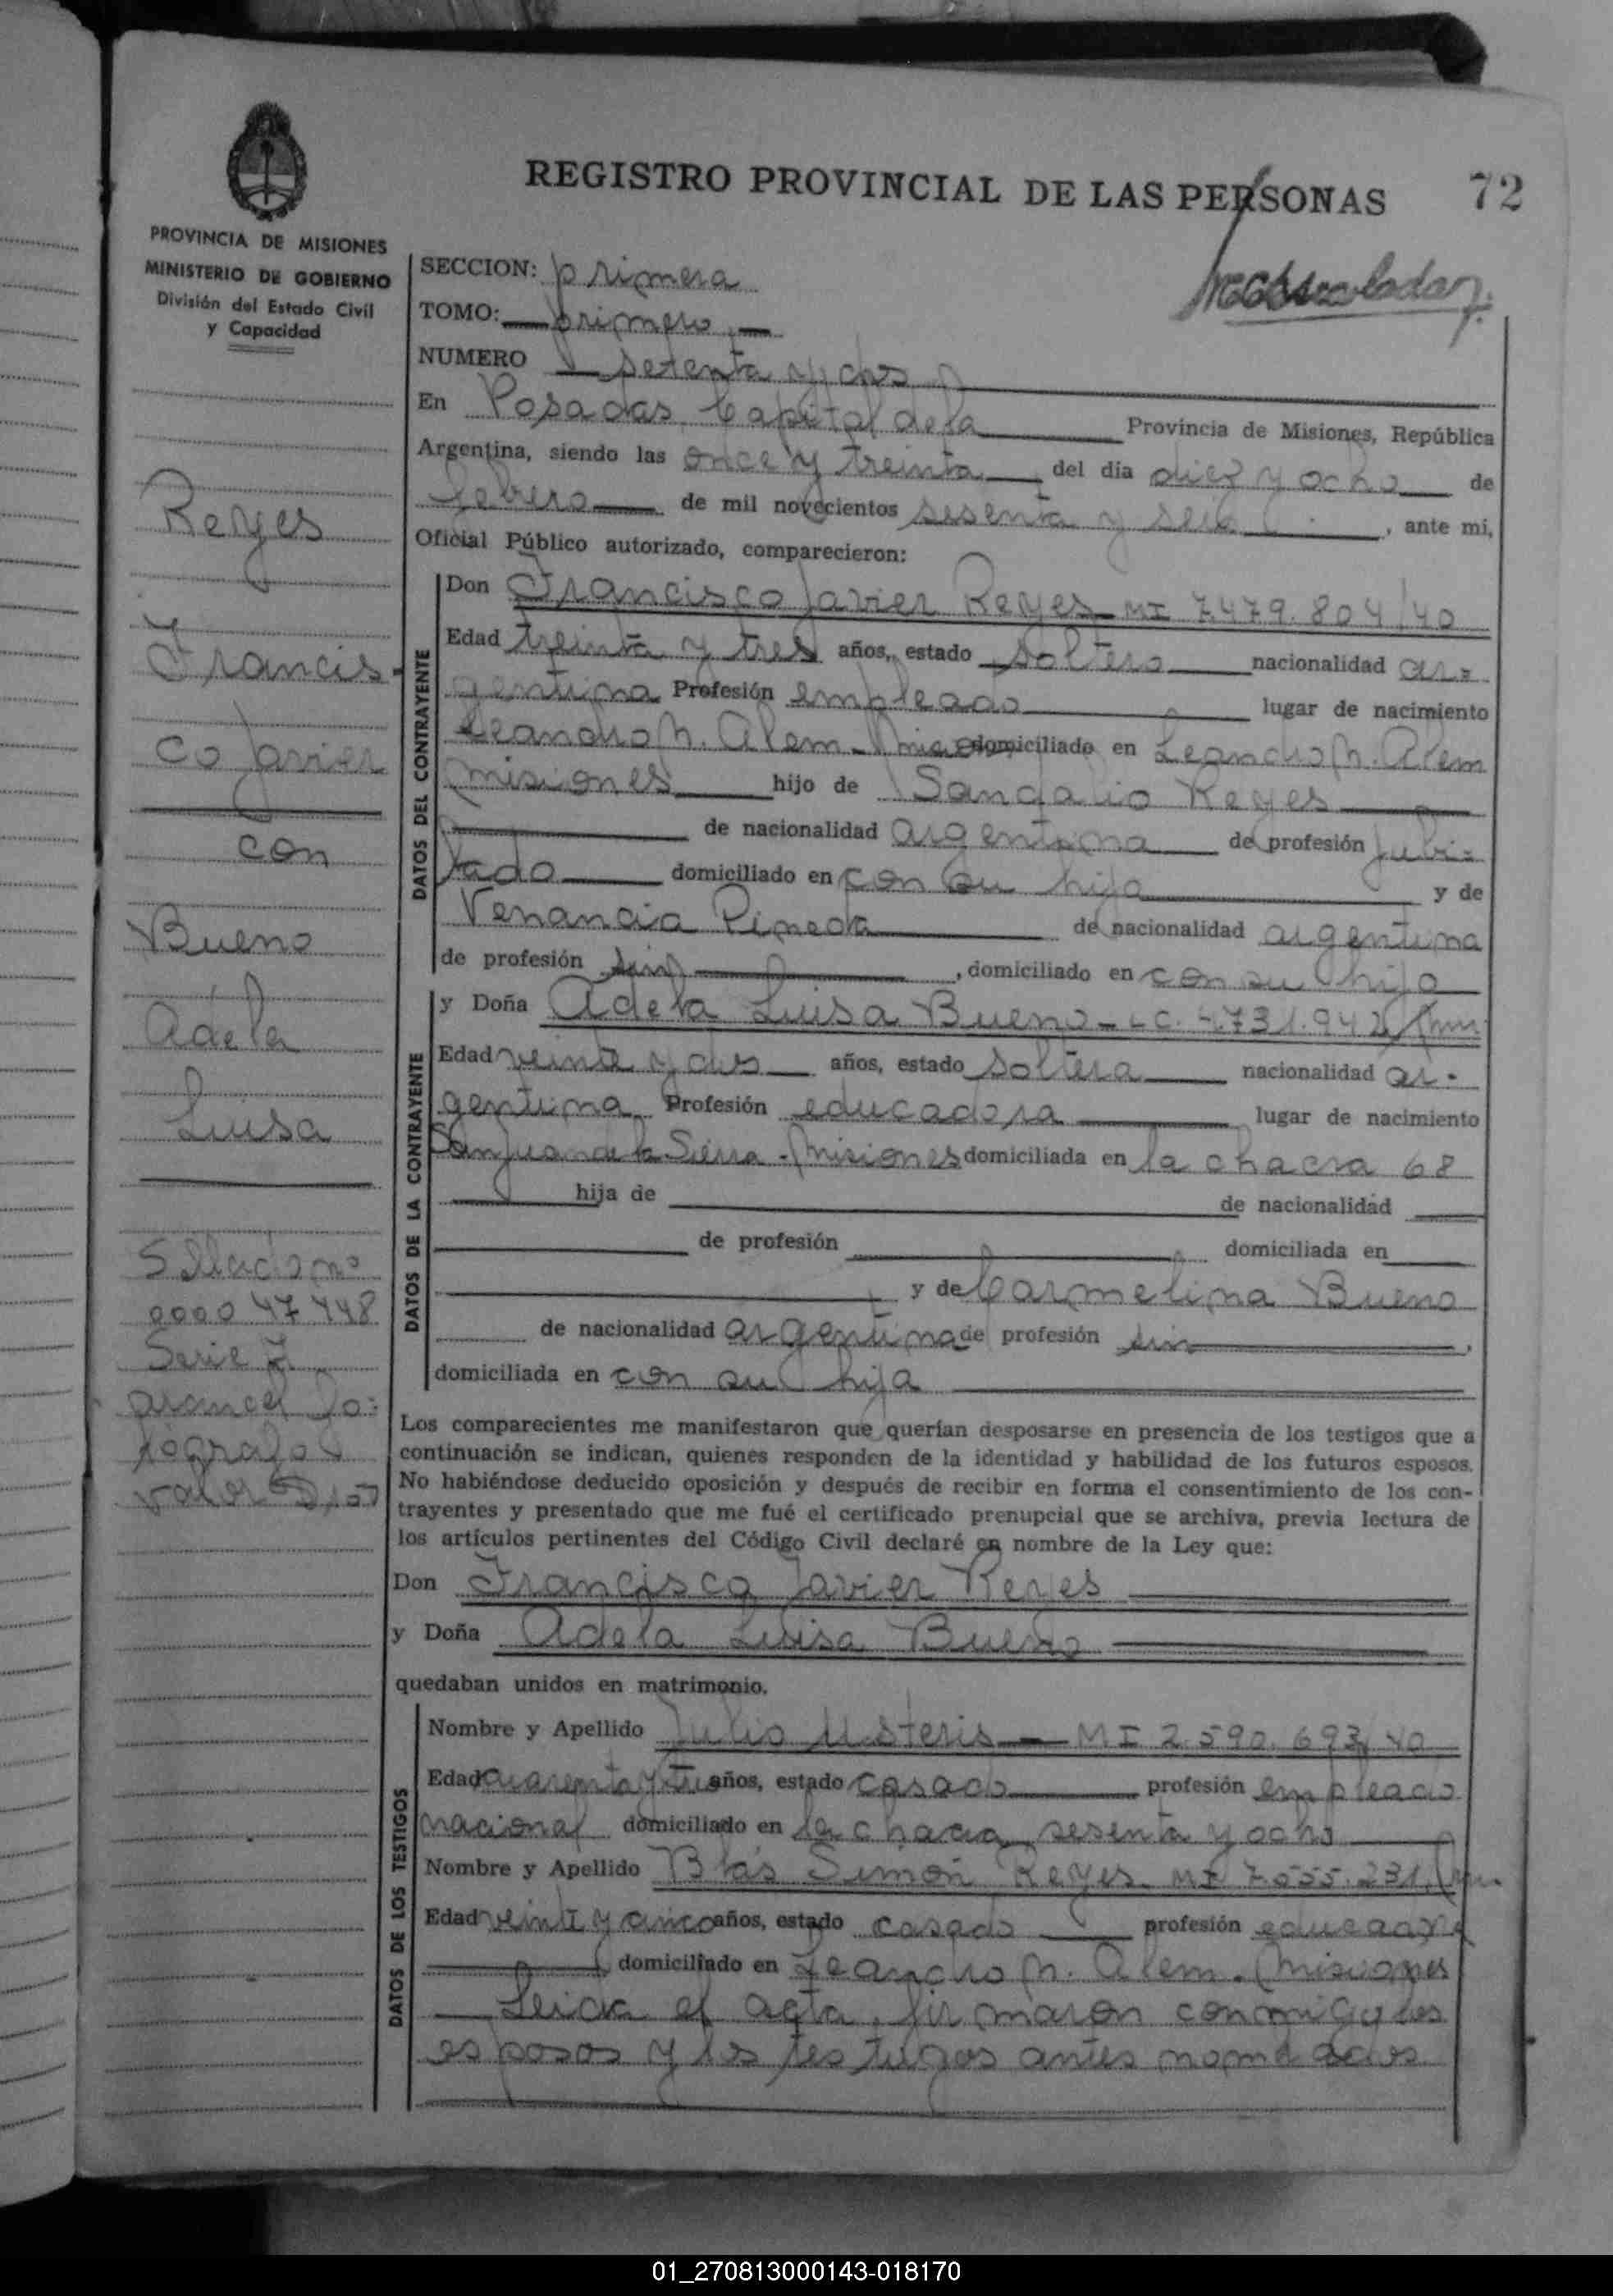 REGISTRO PROVINCIAL DE LAS PERSONAS 72
PROVINCIA DE MISIONES
MINISTERIO DE GOBIERNO
División del Estado Civil
y Capacidad
Reyes
Francis-
co Javier
con
Bueno
Adela
Luisa
Sellado no
0000 47448
Serie
arancel fo-
tografo
valor
SECCION: primera
TOMO: primero
NUMERO setenta y dos
En Posadas, Capital de la Provincia de Misiones, República
Argentina, siendo las once y treinta del día diez y ocho de
febrero de mil novecientos sesenta y seis, ante mi,
Oficial Público autorizado, comparecieron:
DATOS DEL CONTRAYENTE
Don Francisco Javier Reyes MI 7.479.804/40
Edad treinta y tres años, estado soltero nacionalidad ar=
gentina Profesión empleado lugar de nacimiento
Leandro N. Alem - domiciliado en Leandro N. Alem
Misiones hijo de Sandalio Reyes
de nacionalidad argentina de profesión jubi=
lado domiciliado en con su hijo y de
Venancia Pineda de nacionalidad argentina
de profesión sin, domiciliado en con su hijo
DATOS DE LA CONTRAYENTE
y Doña Adela Luisa Bueno - LC. 4.731.942
Edad veinte y dos años, estado soltera nacionalidad ar-
gentina Profesión educadora lugar de nacimiento
San Juan de la Sierra - Misiones domiciliada en la chacra 68
hija de de nacionalidad
de profesión domiciliada en
y de Carmelina Bueno
de nacionalidad argentina de profesión sin,
domiciliada en con su hija
Los comparecientes me manifestaron que querían desposarse en presencia de los testigos que a
continuación se indican, quienes responden de la identidad y habilidad de los futuros esposos.
No habiéndose deducido oposición y después de recibir en forma el consentimiento de los con-
trayentes y presentado que me fué el certificado prenupcial que se archiva, previa lectura de
los artículos pertinentes del Código Civil declaré en nombre de la Ley que:
Don Francisco Javier Reyes
y Doña Adela Luisa Bueno
quedaban unidos en matrimonio.
DATOS DE LOS TESTIGOS
Nombre y Apellido Julio MI 2.590.693/40
Edad cuarenta y tres años, estado casado profesión empleado
nacional domiciliado en la chacra sesenta y ocho
Nombre y Apellido Blás Simón Reyes MI 7.555.231
Edad veinte y cinco años, estado casado profesión educador
domiciliado en Leandro N. Alem. Misiones
Leída el acta, firmaron conmigo los
esposos y los testigos antes nombrados
01_270813000143-018170